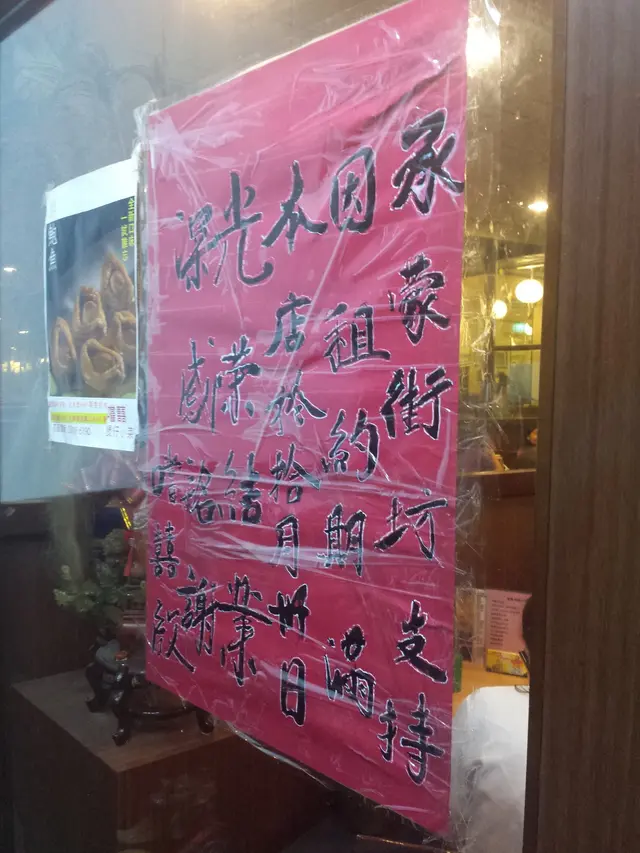 承蒙街坊支持
因租約期滿
本店於拾月卅日
光榮結業
深感銘謝
囍啟